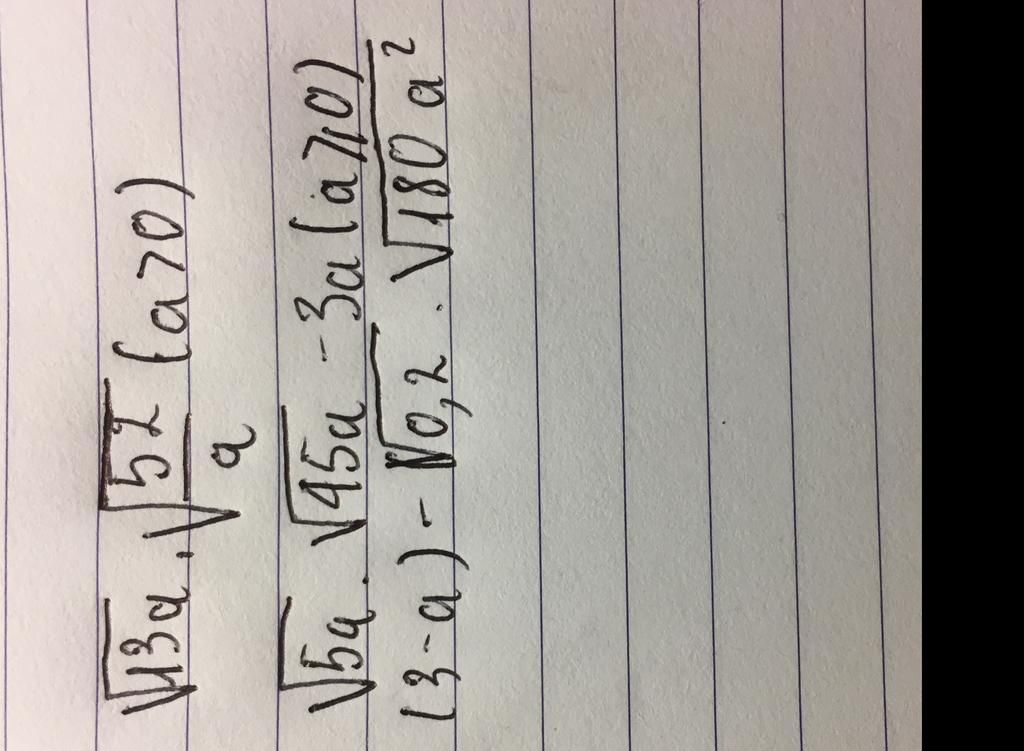 √13a . √52/a (a>0)
√5a . √45a - 3a (a⩾0)
(3-a) - √0,2 . √180a²